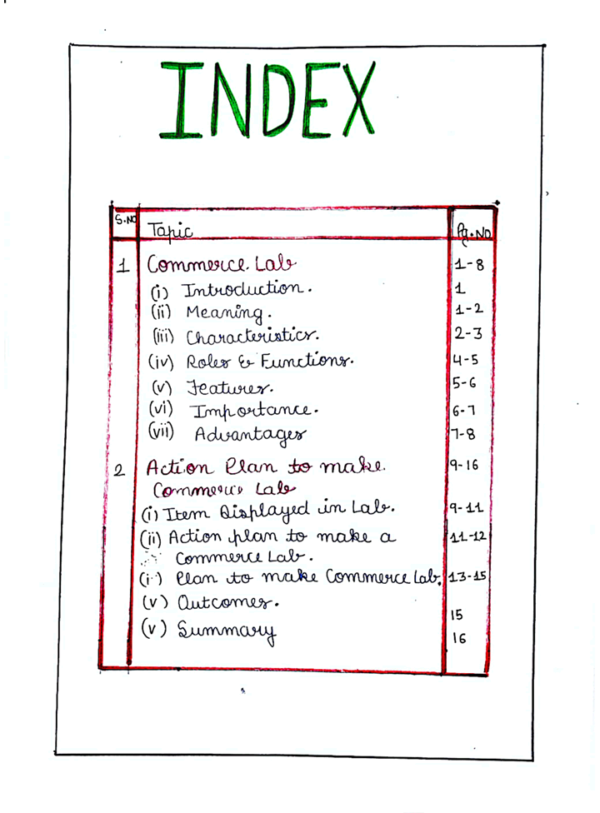 INDEX
S.NO Tapic Pg.NO
1 Commerce Lab 1-8
(i) Introduction. 1
(ii) Meaning. 1-2
(iii) Characteristics. 2-3
(iv) Roles & Functions. 4-5
(v) Features. 5-6
(vi) Importance. 6-7
(vii) Advantages 7-8
2 Action Plan to make 9-16
Commerce Lab
(i) Item Displayed in Lab. 9-11
(ii) Action plan to make a 11-12
Commerce Lab.
(i) Plan to make Commerce Lab. 13-15
(v) Outcomes. 15
(v) Summary 16